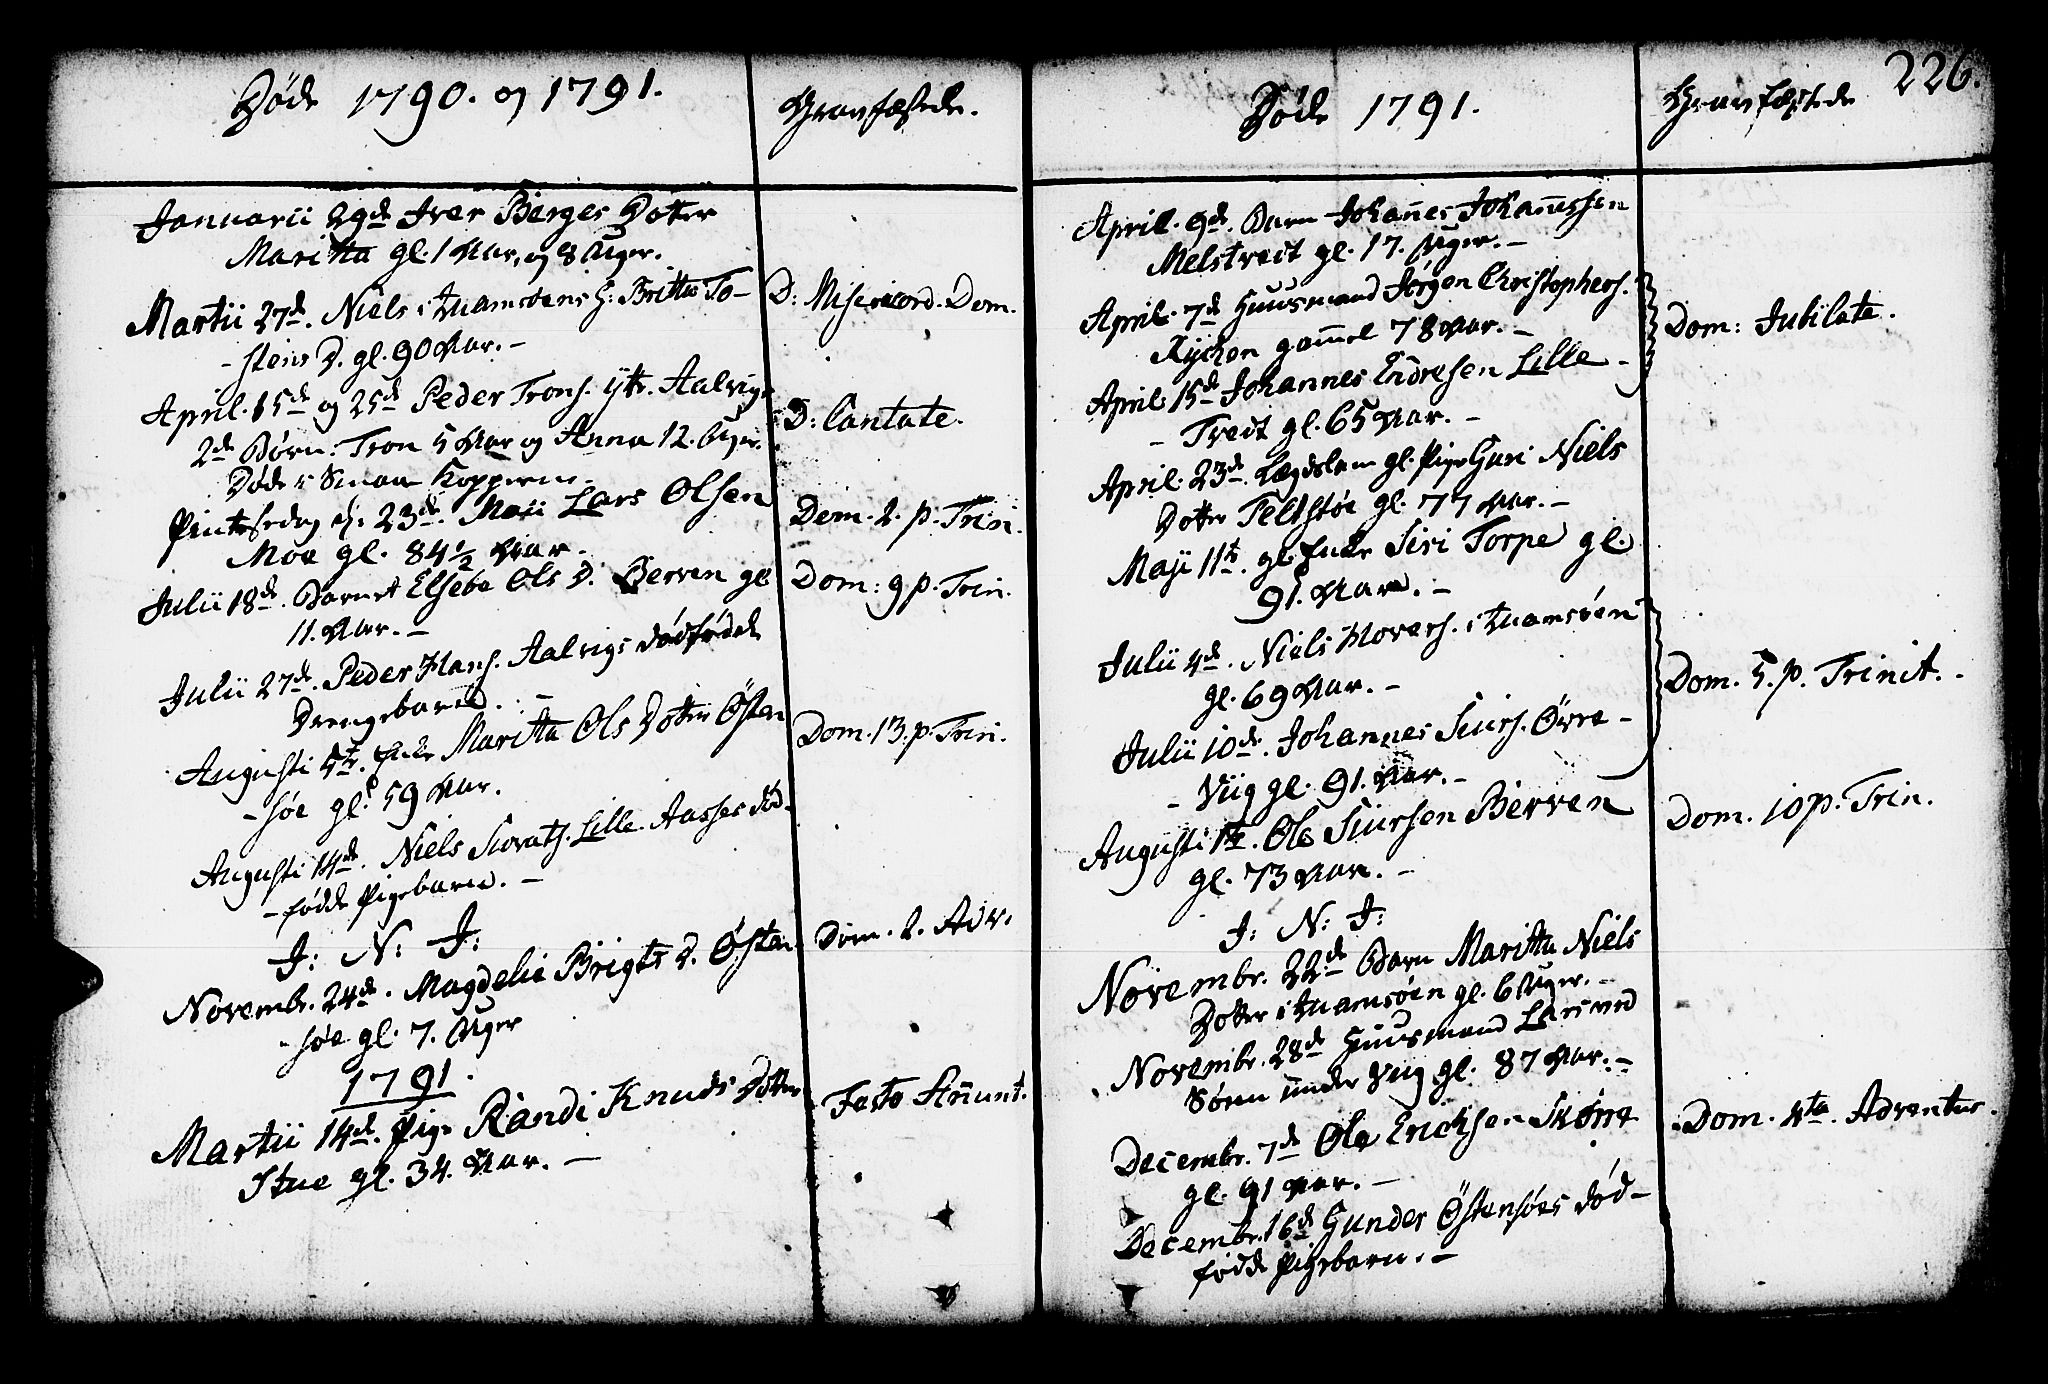 Døde 1790. og 1791.
Gravfæstede.
Januarii 29de Iver Berges Dotter
Maritta gl. 1 Aar, og 8 Uger.
Martii 27de. Niels i Quamsøens H: Britta To-
-steins D. gl. 90 Aar. -
D: Misericord. Dom.
April. 15de og 25de Peder Trons. ytr. Aalvigs
2de Børn. Tron 5 Aar og Anna 12. Uger.
Døde i Smaa Kopperne.
D: Cantate.
Pintsedag d: 23de. Maii Lars Olsen
Moe gl. 84 1/2 Aar.
Dom. 2. p. Trin.
Julii 18de. Barnet Elsebe Ols D. Berven gl
11. Aar. -
Dom: 9 p. Trin.
Julii 27de. Peder Hans. Aalvigs dødfødde
Drengebarn.
Augusti 5te. Enke Maritta Ols Dotter Østen
-søe gl. 59 Aar.
Dom. 13. p. Trin.
Augusti 14de. Niels Siovats. Lille-Aasses død-
-fødde Pigebarn. -
J: N: J:
Novembr. 24de. Magdeli Brigts D. Østen
-søe gl. 7. Uger
Dom. 2. Adv.
1791.
Martii 14de. Pige Randi Knuds Dotter
Stue gl. 34. Aar. -
Festo Añunt.
Døde 1791.
Gravfæstede
226.
April. 9de. Barn Johañes Johañessen
Melstveit gl. 17. Uger. -
April. 7de Huusmand Jørgen Christophers.
Tychen gam̃el 78 Aar. -
April 15de Johannes Endresen Lille -
- Tveit gl. 65 Aar. -
Dom: Jubilate.
April. 23de. Lægdslem gl. Pige Guri Niels
Dotter Teltstøe gl. 77 Aar. -
Maji 11te. gl. Enke Siri Torpe gl.
91. Aar. -
Julii 4de. Niels Hovars. i Quamsøen
gl. 69 Aar. -
Julii 10de. Johannes Siurs. Øvre -
- Viig gl. 91. Aar. -
Dom. 5. p. Trinit. -
Augusti 1te. Ole Siursen Berven
gl. 73 Aar. -
Dom. 10 p. Trin.
J: N: J:
Novembr. 22de Barn Maritta Niels
Dotter i Quamsøen gl. 6 Uger. -
Novembr. 28de Huusmand Lars ved
Søen under Viig gl. 87 Aar. -
Decembr. 7de Ole Erichsen Skørre
gl. 91 Aar. -
Dom. 4ta Adventus.
Decembr. 16de Gunder Østensøes død-
fødde Pigebarn. -